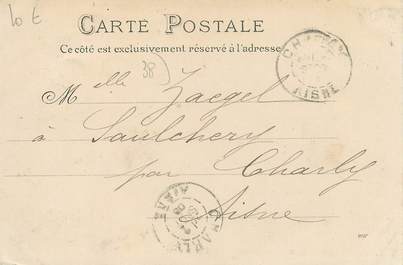 10 €
CARTE POSTALE
Ce côté est exclusivement réservé à l'adresse
38
Melle Zaegel
à Saulchery
par Charly
Aisne
CHARLY
AISNE
CHARLY
AISNE